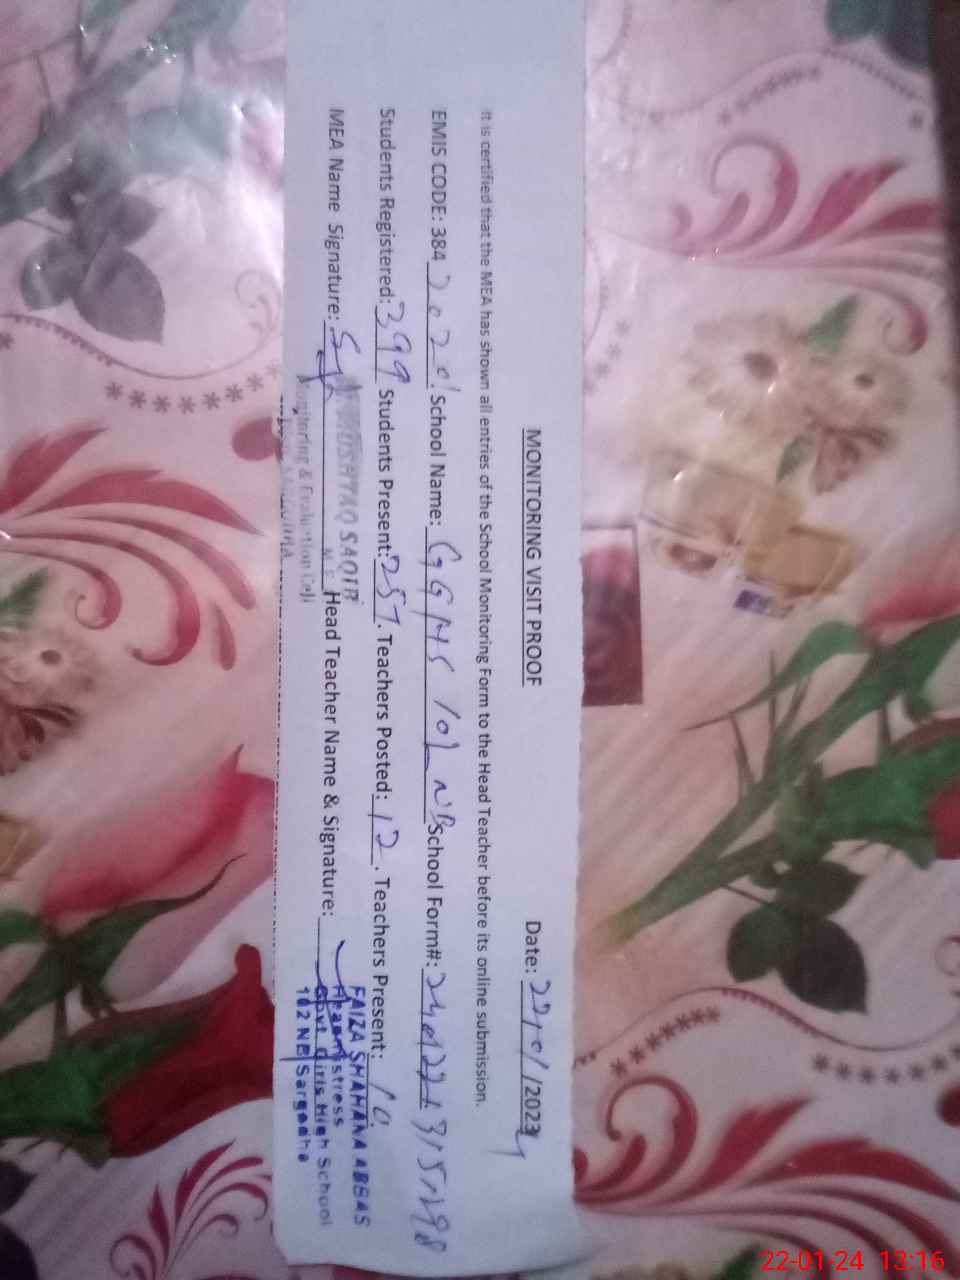 MONITORING VISIT PROOF
Date: 22-01/2024
It is certified that the MEA has shown all entries of the School Monitoring Form to the Head Teacher before its online submission.
EMIS CODE: 384 School Name: GGHS 102 NB School Form#:
Students Registered: 399 Students Present: 257. Teachers Posted: 12. Teachers Present: 10.
MEA Name Signature: Head Teacher Name & Signature:
SAQIB
Monitoring & Evaluation Cell
FAIZA SHAHANA ABBAS
Headmistress
Govt. Girls High School
102 NB Sargodha
22-01-24 13:16